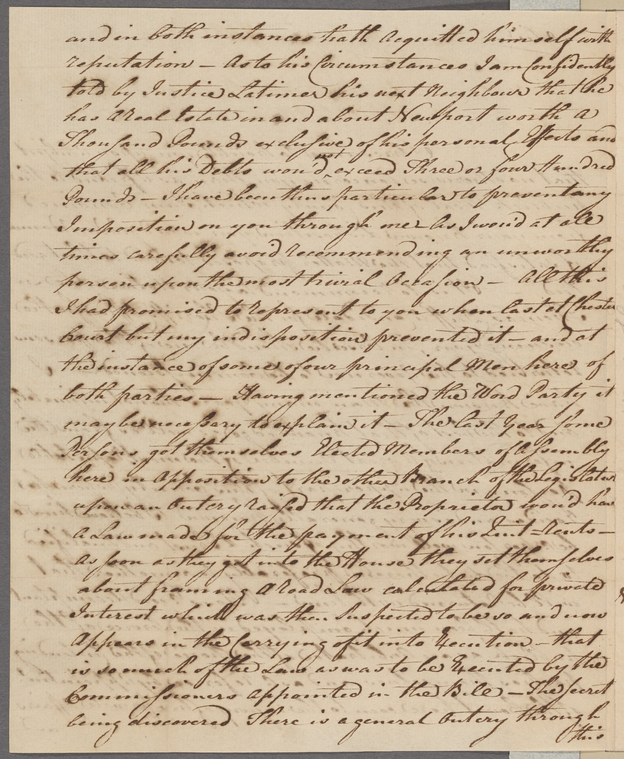 and in both instances hath acquitted himself with
reputation – As to his Circumstances I am Confidently
told by Justice Latimer his next Neighbour that he
has a real Estate in and about Newport worth a
Thousand Pounds exclusive of his personal Effects and
that all his Debts wou'd not exceed Three or four Hundred
Pounds – I have been thus particular to prevent any
Imposition on you through me as I wou'd at all
times carefully avoid recommending an unworthy
person upon the most trivial Occasion – All this
I had promised to represent to you when last at Chester
Court but my indisposition prevented it – and at
the instance of some of our principal Men here of
both parties – Having mentioned the Word Party it
may be necessary to explain it – The last Year some
Persons got themselves Elected Members of Assembly
here in Apposition to the other Branch of the Legislature
upon an Outcry raised that the Proprietor wou'd have
a Law made for the payment of his Quit-Rents –
as soon as they got into the House they set themselves
about framing a Road Law calculated for private
Interest which was then suspected to be so and now
Appears in the Carrying of it into Execution – that
is so much of the Law as was to be Executed by the
Commissioners appointed in the Bill – The secret
being discovered There is a general Outcry through
this